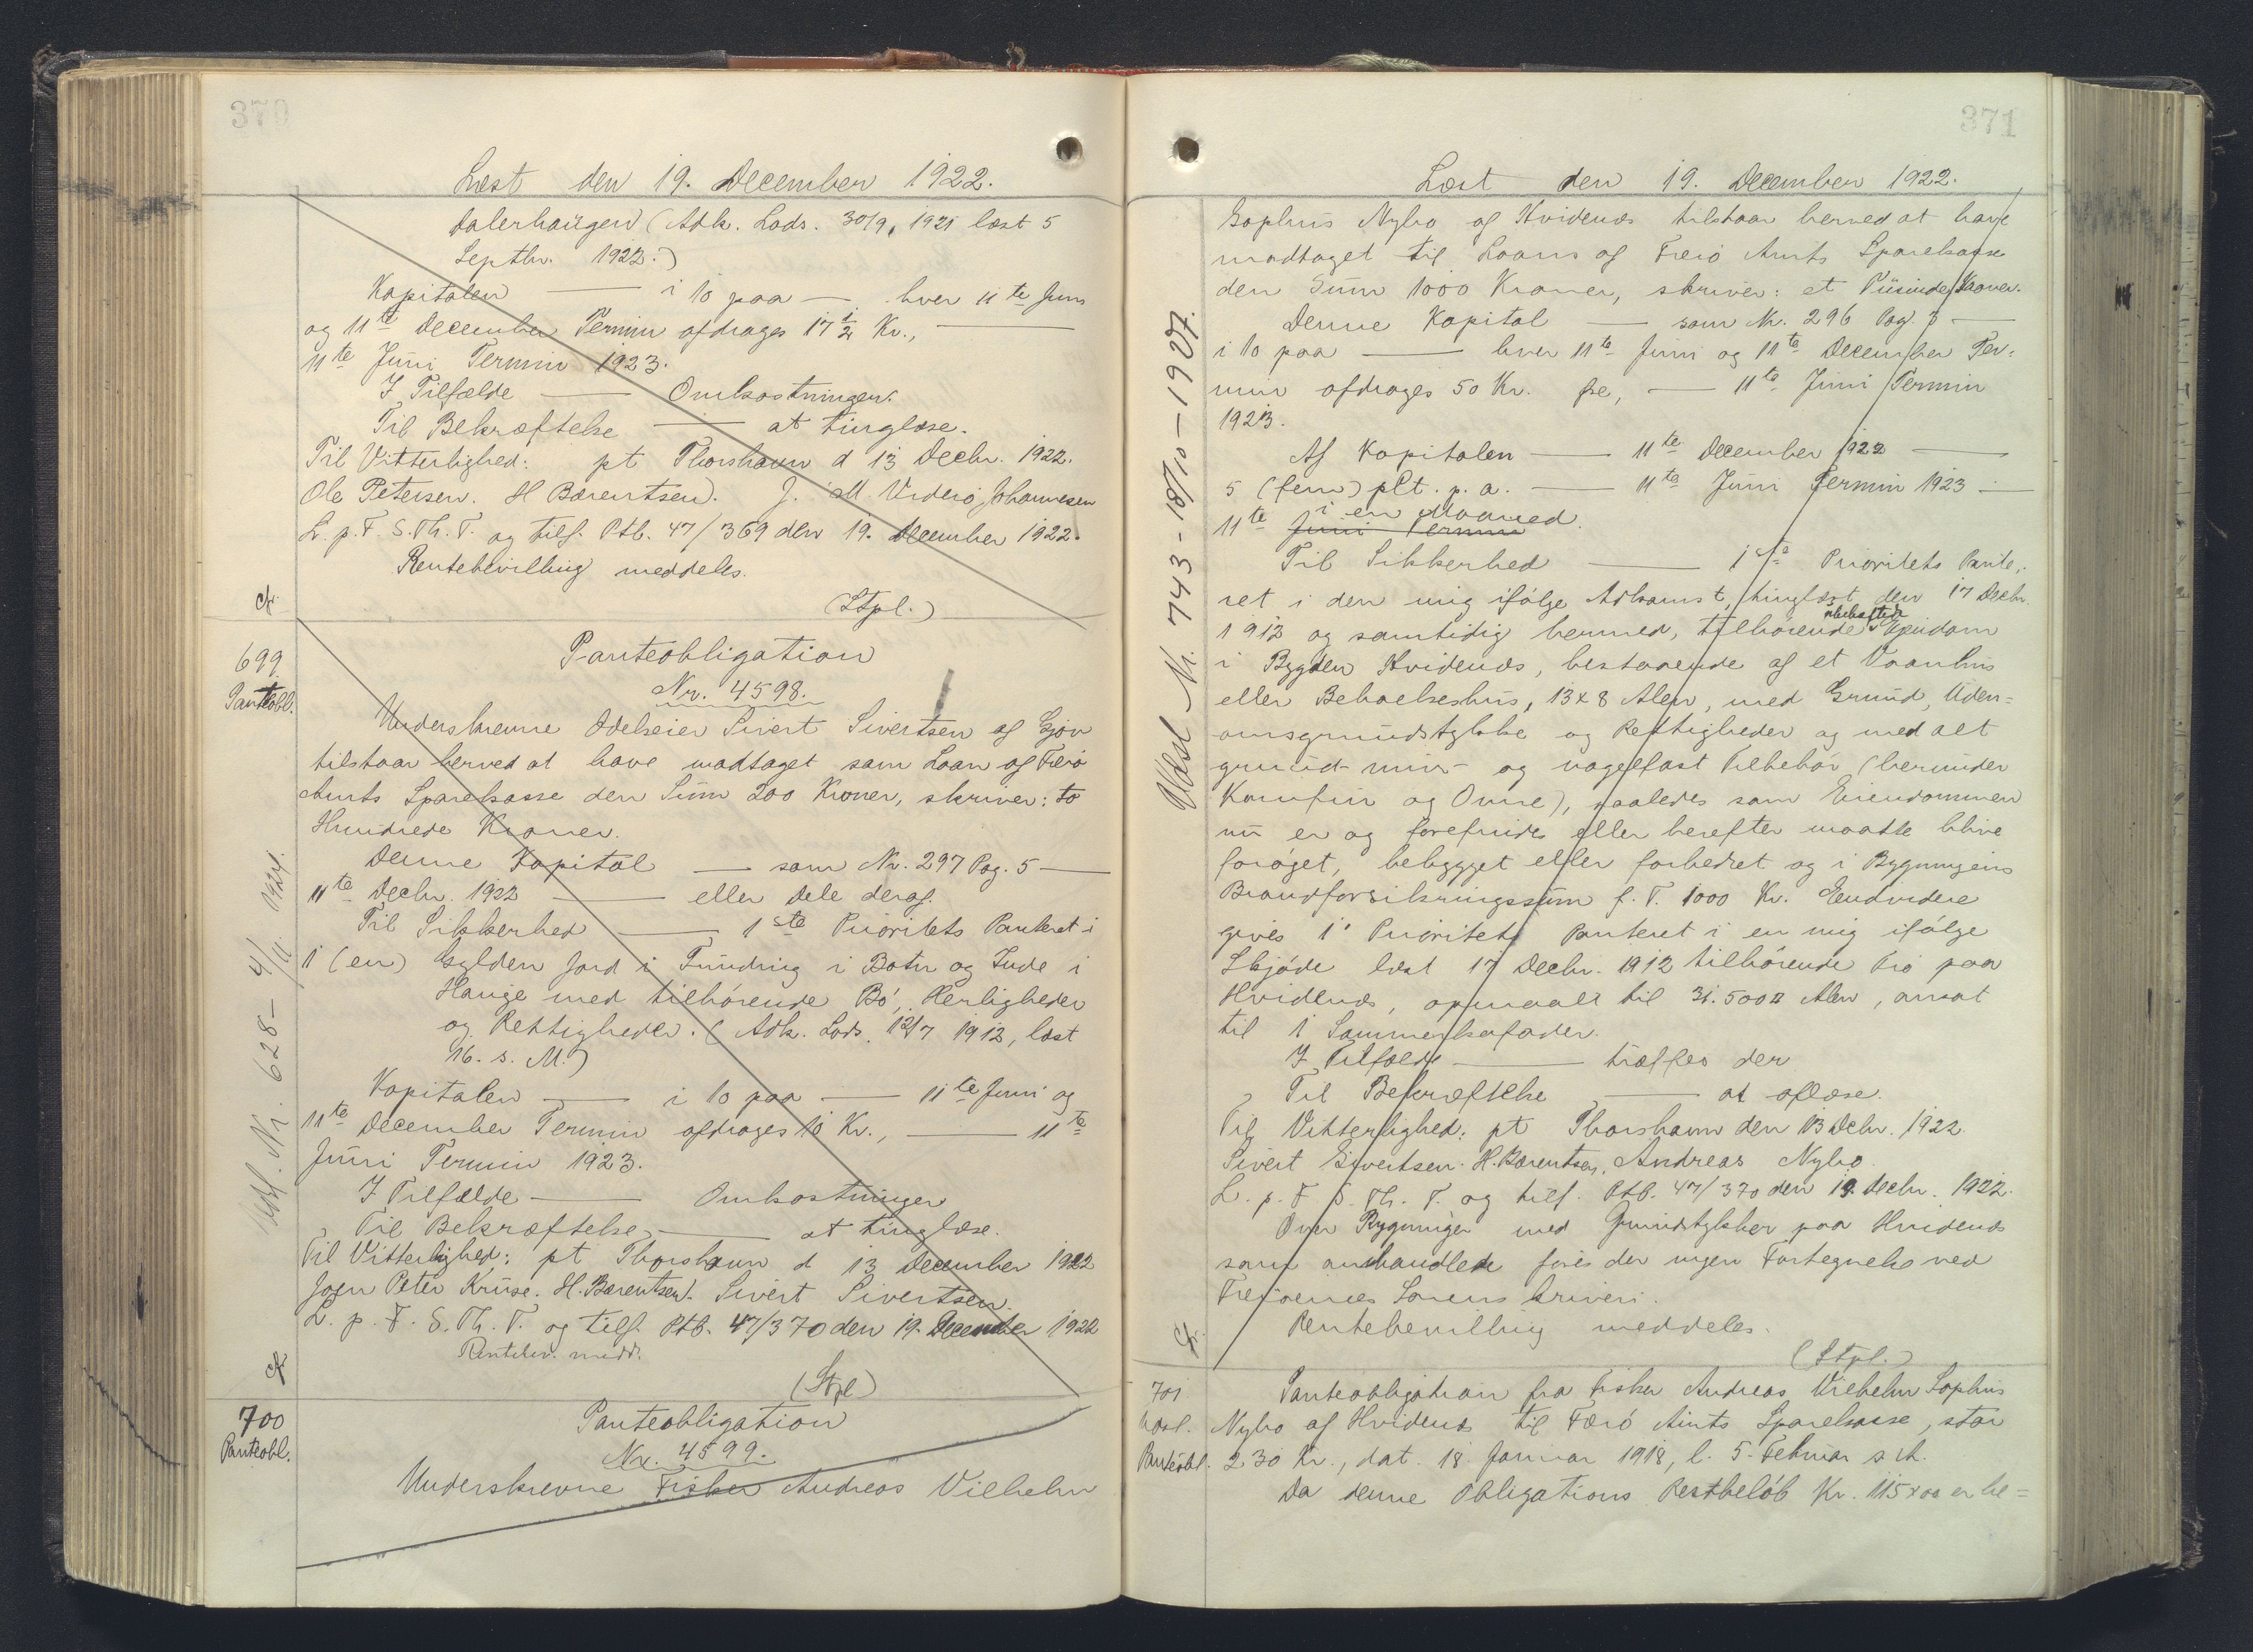 370
Læst den 19. December 1922.
Dalerhaugen (Adk. Lods. 30/9, 1921 læst 5
Septbr. 1922.)
Kapitalen — i 10 paa — hver 11te Juni
og 11te December Termin afdrages 17 1/2 Kr., —
11te Juni Termin 1923.
I Tilfælde — Omkostninger.
Til Bekræftelse — at tinglæse.
Til Vitterlighed: pt Thorshavn d 13 Decbr. 1922.
Ole Petersen. H Bærentsen. J. M. Viderø Johannesen
L. p. F. S. Th. T. og tilf. Ptb. 47/369 den 19. December 1922.
Rentebevilling meddeles.
cf.
(Stpl.)
699
Panteobl.
Panteobligation
Nr. 4598.
Underskrevne Odelseier Sivert Sivertsen af Gjov
tilstaar herved at have modtaget som Laan af Færø
Amts Sparekasse den Sum 200 Kroner, skriver: to
Hundrede Kroner.
Denne Kapital — som Nr. 297 Pag. 5 —
11te Decbr. 1922 — eller Dele deraf.
Til Sikkerhed — 1ste Prioritets Panteret i
1 (en) Gylden Jord i Funding i Botn og Inde i
Hauge med tilhörende Bö, Herligheder
og Rettigheder. (Adk. Lods. 12/7 1912, læst
16. s. M.)
Kapitalen — i 10 paa — 11te Juni og
11te December Termin afdrages 10 Kr., — 11te
Juni Termin 1923.
I Tilfælde — Omkostninger
Til Bekræftelse — at tinglæse.
Til Vitterlighed: pt Thorshavn d 13 December 1922
Joen Peter Kruse. H. Bærentsen. Sivert Sivertsen.
L. p. F. S. Th. T. og tilf. Ptb. 47/370 den 19. December 1922
Rentebev. medd.
cf
(Stpl)
Udsl. Nr. 628 - 4/11 1924.
700
Panteobl.
Panteobligation
Nr. 4599.
Underskrevne Fisker Andreas Vilhelm
371
Læst den 19. December 1922.
Sophus Nybo af Hvidenæs tilstaar herved at have
modtaget til Laans af Færø Amts Sparekasse
den Sum 1000 Kroner, skriver: et Tusinde Kroner.
Denne Kapital — som Nr. 296 Pag. 3 —
i 10 paa — hver 11te Juni og 11te December Ter-
min afdrages 50 Kr. — 11te Juni Termin
1923.
Af Kapitalen — 11te December 1922 —
5 (fem) pCt. p. a. — 11te Juni Termin 1923 —
i en Maaned.
11te Juni Termin
Til Sikkerhed — 1ste Prioritets Pante-
ret i den mig ifölge Adkomst, tinglæst den 17 Decbr.
ubehæftede
1912 og samtidig hermed, tilhörende Ejendom
i Bygden Hvidenæs, bestaaende af et Vaanhus
eller Beboelseshus, 13 x 8 Alen, med Grund, Uden-
omsgrundstykke og Rettigheder og med alt
grund- mur- og nagelfast Tilbehör (herunder
Komfur og Ovne), saaledes som Eiendommen
nu er og forefindes eller herefter maatte blive
foröget, bebygget eller forbedret og i Bygningens
Brandforsikringssum f. T. 1000 Kr. Endvidere
gives 1' Prioritets Panteret i en mig ifölge
Skjöde læst 17 Decbr. 1912 tilhörende Trö paa
Hvidenæs, opmaalt til 31.500 □ Alen, ansat
til 1 Sommerkofoder.
I Tilfælde — træffes der
Til Bekræftelse — at aflæse.
Til Vitterlighed: pt Thorshavn den 13 Decbr. 1922.
Sivert Sivertsen. H. Bærentsen. Andreas Nybo
L. p. F. S. Th. T. og tilf. Ptb. 47/370 den 19. Decbr. 1922.
Over Bygninger med Grundstykker paa Hvidenæs
som omhandlede føres der ingen Fortegnelse ved
Færøernes Sorenskriveri.
Rentebevilling meddeles.
cf.
(Stpl.)
Udsl. Nr. 743 - 18/10 - 1927.
701
Kvas. Panteobligation fra Fisker Andreas Vilhelm Sophus
Panteobl. Nybo af Hvidenæs til Færö Amts Sparekasse, stor
230 Kr., dat. 18. Januar 1918, l. 5. Februar s. A.
Da denne Obligations Restbelöb Kr. 115x00 er be=